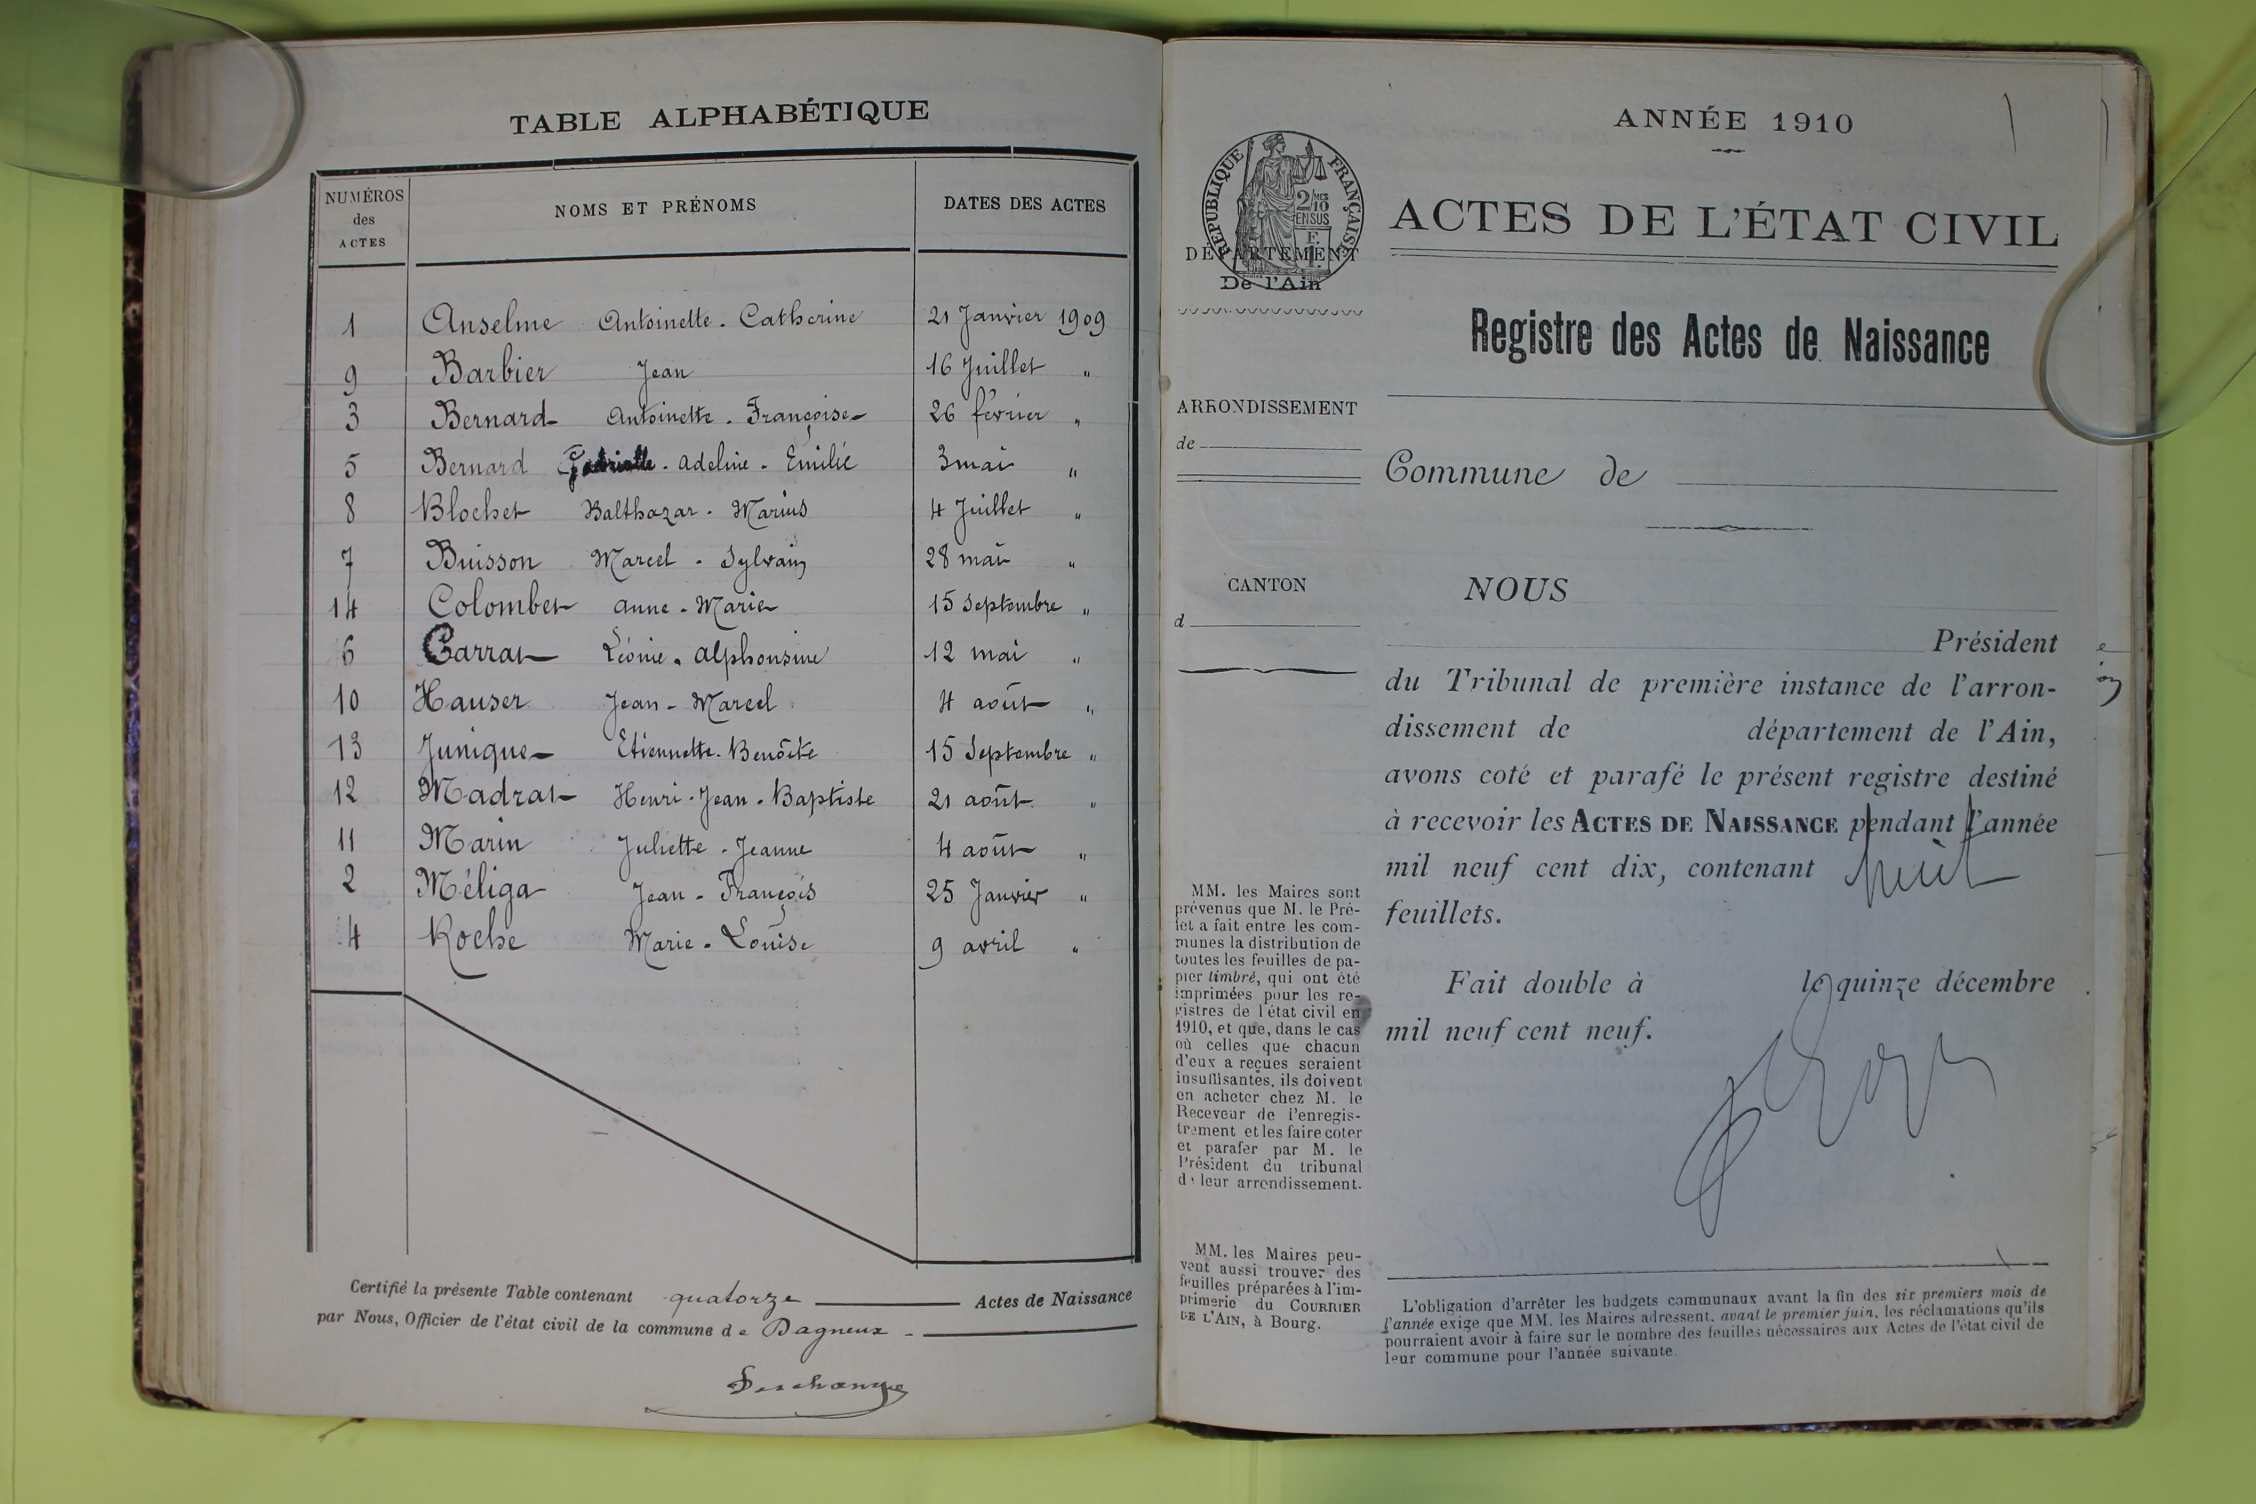 TABLE ALPHABÉTIQUE
NUMÉROS des ACTES NOMS ET PRÉNOMS DATES DES ACTES
1 Anselme Antoinette. Catherine 21 Janvier 1909
9 Barbier Jean 16 Juillet "
3 Bernard Antoinette. Françoise 26 février "
5 Bernard Gabrielle. Adeline. Emilie 3 mai "
8 Blochet Balthazar. Marius 4 Juillet "
7 Buisson Marcel. Sylvain 28 mai "
14 Colombet Anne. Marie 15 Septembre "
6 Garrat Léonie. Alphonsine 12 mai "
10 Hauser Jean - Marcel 4 août "
13 Junique Etiennette. Benoîte 15 Septembre "
12 Madrat Henri. Jean. Baptiste 21 août "
11 Marin Juliette. Jeanne 4 août "
2 Méliga Jean - François 25 Janvier "
4 Roche Marie. Louise 9 avril "
Certifié la présente Table contenant quatorze Actes de Naissance
par Nous, Officier de l'état civil de la commune de Dagneux
ANNÉE 1910
RÉPUBLIQUE FRANÇAISE
2/10 EN SUS
F. 1
ACTES DE L'ÉTAT CIVIL
DÉPARTEMENT
De l'Ain
Registre des Actes de Naissance
ARRONDISSEMENT
de
Commune de
CANTON
d
NOUS
Président
du Tribunal de première instance de l'arron-
dissement de département de l'Ain,
avons coté et parafé le présent registre destiné
à recevoir les ACTES DE NAISSANCE pendant l'année
mil neuf cent dix, contenant huit
feuillets.
Fait double à le quinze décembre
mil neuf cent neuf.
MM. les Maires sont
prévenus que M. le Pré-
fet a fait entre les com-
munes la distribution de
toutes les feuilles de pa-
pier timbré, qui ont été
imprimées pour les re-
gistres de l'état civil en
1910, et que, dans le cas
où celles que chacun
d'eux a reçues seraient
insuffisantes, ils doivent
en acheter chez M. le
Receveur de l'enregis-
trement et les faire coter
et parafer par M. le
Président du tribunal
de leur arrondissement.
MM. les Maires peu-
vent aussi trouver des
feuilles préparées à l'im-
primerie du COURRIER
DE L'AIN, à Bourg.
L'obligation d'arrêter les budgets communaux avant la fin des six premiers mois de
l'année exige que MM. les Maires adressent, avant le premier juin, les réclamations qu'ils
pourraient avoir à faire sur le nombre des feuilles nécessaires aux Actes de l'état civil de
leur commune pour l'année suivante.